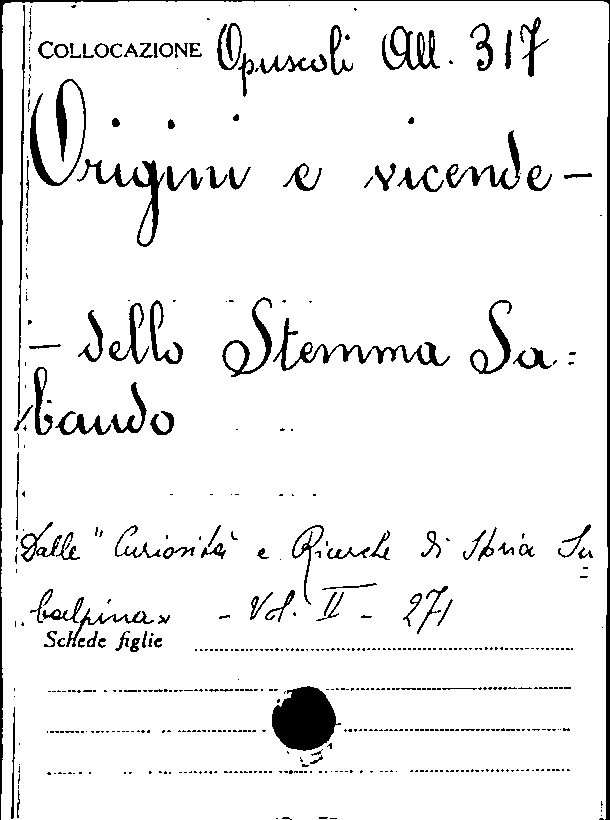 COLLOCAZIONE Opuscoli All. 317
Origini e vicende -
- dello Stemma Sa=
baudo
Dalle "Curiosità e Ricerche di Storia Su
=
balpina» - Vol. II - 271
Schede figlie